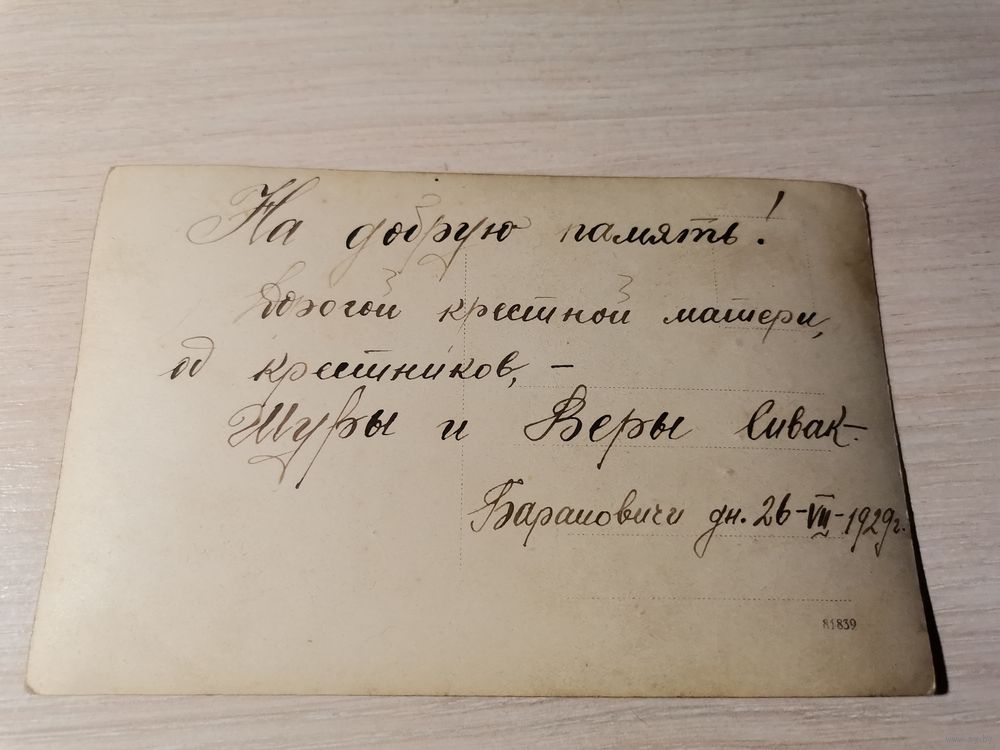 На добрую память!
Дорогой крестной матери,
од крестников, –
Шуры и Веры Сивак –
Барановичи дн. 26-VII-1929г.
81839